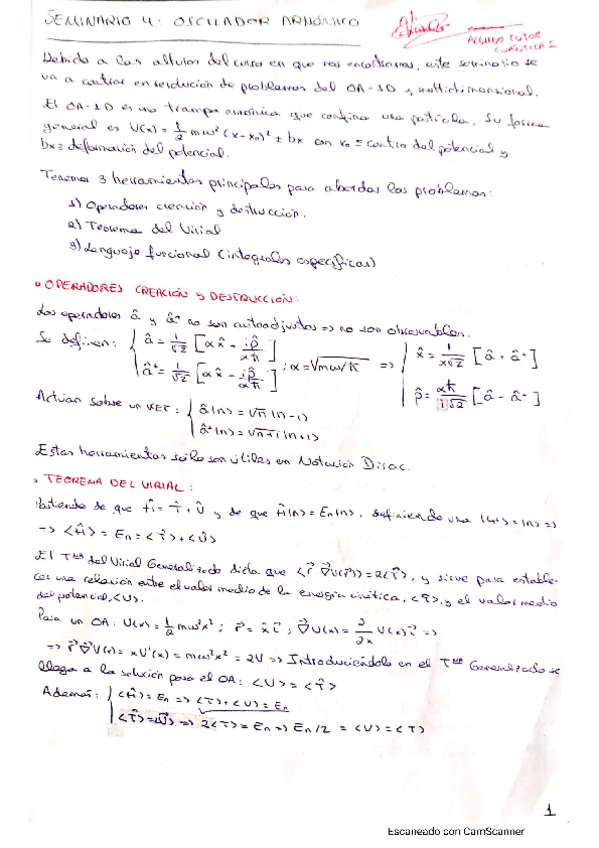 SEMINARIO 4: OSCILADOR ARMÓNICO
ALUMNO TUTOR
CUÁNTICA I
Debido a las alturas del curso en que nos encontramos, este seminario se
va a centrar en resolución de problemas del OA-1D y multidimensional.
El OA-1D es una trampa armónica que confina una partícula. Su forma
general es V(x) = 1/2 mω² (x-x₀)² ± bx con x₀ ≡ centro del potencial y
bx ≡ deformación del potencial.
Tenemos 3 herramientas principales para abordar los problemas:
1) Operadores creación y destrucción.
2) Teorema del Virial
3) Lenguaje funcional (integrales específicas)
• OPERADORES CREACIÓN Y DESTRUCCIÓN:
Los operadores â y â⁺ no son autoadjuntos => no son observables.
Se definen: { â = 1/√2 [αx̂ + ip̂/αħ] ; α = √mω/ħ => { x̂ = 1/α√2 [â + â⁺]
â⁺ = 1/√2 [αx̂ - ip̂/αħ] p̂ = αħ/i√2 [â - â⁺]
Actúan sobre un KET: { â|n> = √n |n-1>
â⁺|n> = √n+1 |n+1>
Estas herramientas sólo son útiles en Notación Dirac.
• TEOREMA DEL VIRIAL:
Partiendo de que Ĥ = T̂ + Û y de que Ĥ|n> = Eₙ|n>, definiendo una |Ψ> = |n> =>
=> <Ĥ> = Eₙ = <T̂> + <Û>
El Tᵐᵃ del Virial Generalizado dicta que <r⃗ ∇⃗U(r⃗)> = 2<T̂>, y sirve para estable-
cer una relación entre el valor medio de la energía cinética, <T̂>, y el valor medio
del potencial, <U>.
Para un OA: U(x) = 1/2 mω²x² ; r⃗ = x̂ i⃗ ; ∇⃗U(x) = ∂/∂x U(x) i⃗ =>
=> r⃗ ∇⃗U(x) = xU'(x) = mω²x² = 2U => Introduciéndolo en el Tᵐᵃ Generalizado se
llega a la solución para el OA: <U> = <T̂>
Además: { <Ĥ> = Eₙ => <T> + <U> = Eₙ
<T̂> = <Û> => 2<T> = Eₙ => Eₙ/2 = <U> = <T>
1
Escaneado con CamScanner